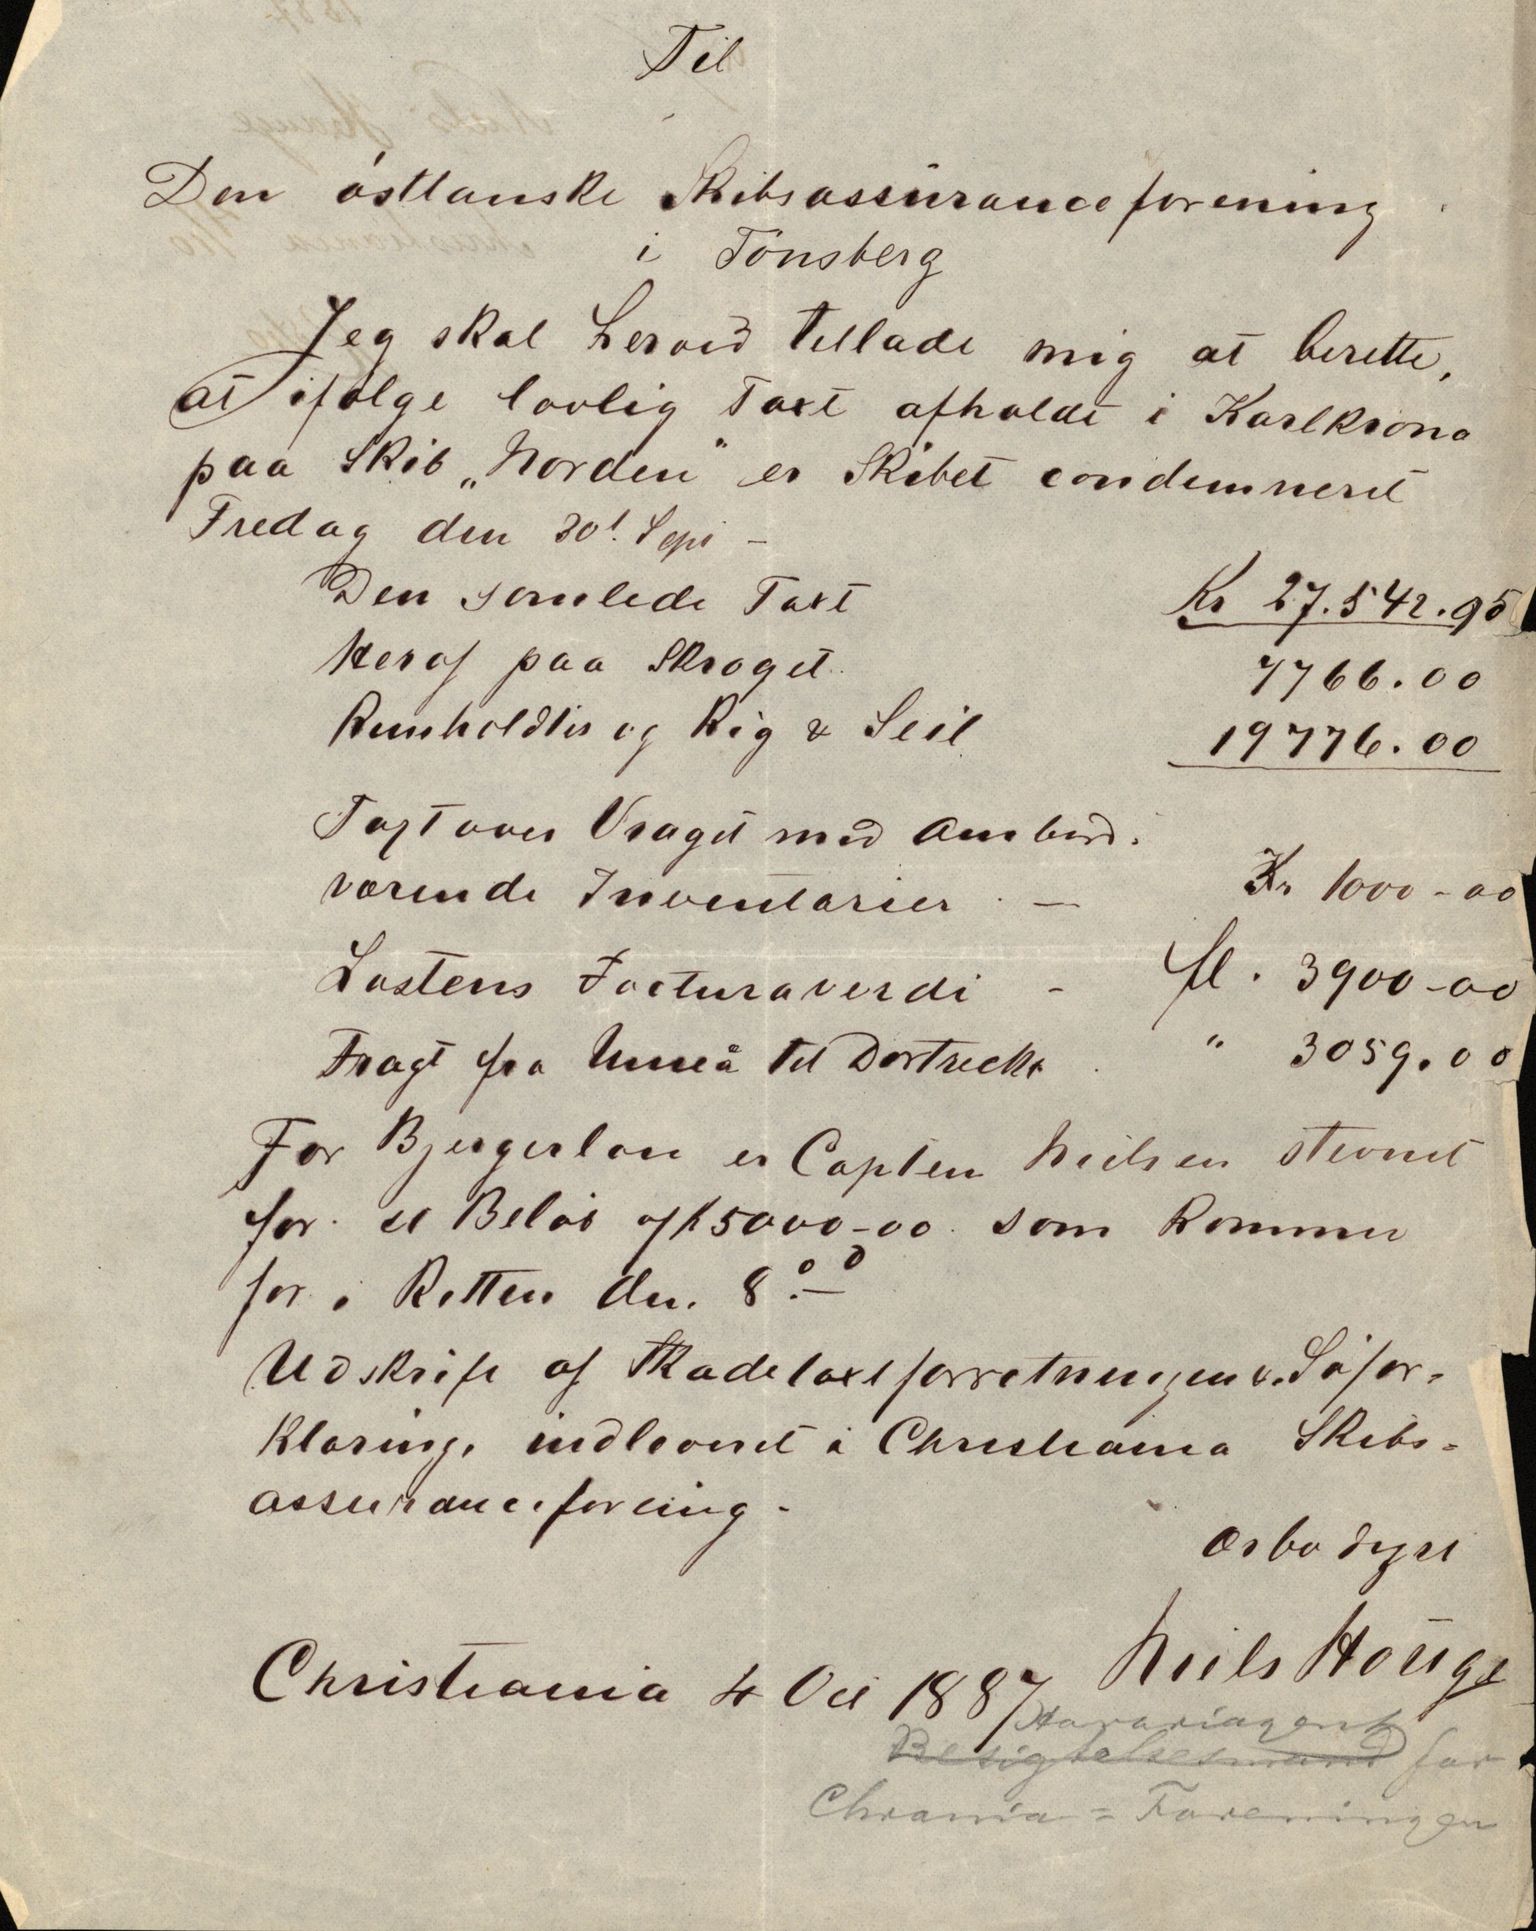 Til
Den östlanske Skibsassuranceforening
i Tönsberg
Jeg skal herved tillade mig at berette,
at ifölge lovlig Taxt afholdt i Karlkrona
paa Skib „Norden" er Skibet condemneret
Fredag den 30t. Sept –
Den samlede Taxt Kr 27.542.95
Heraf paa Skroget 7766.00
Rundholdter og Rig & Seil 19776.00
Taxt over Vraget med Ombord.
værende Inventarier – Kr 1000-00
Lastens Facturaverdi – fl. 3900-00
Fragt fra Umeå til Dortrecht " 3059.00
For Bjergerlön er Capten Nielsen stevnet
for et Belöb af 15000-00 som kommer
for i Retten den 8de
Udskrift af Skadetaxtforretningen & Söfor=
klaring, indleveret i Christiania Skibs=
assuranceforening –
Ærbödigst
Christiania 4 Oct 1887 Niels Houge
Havariagent
Besigtelsesmand for
Chrania = Foreningen